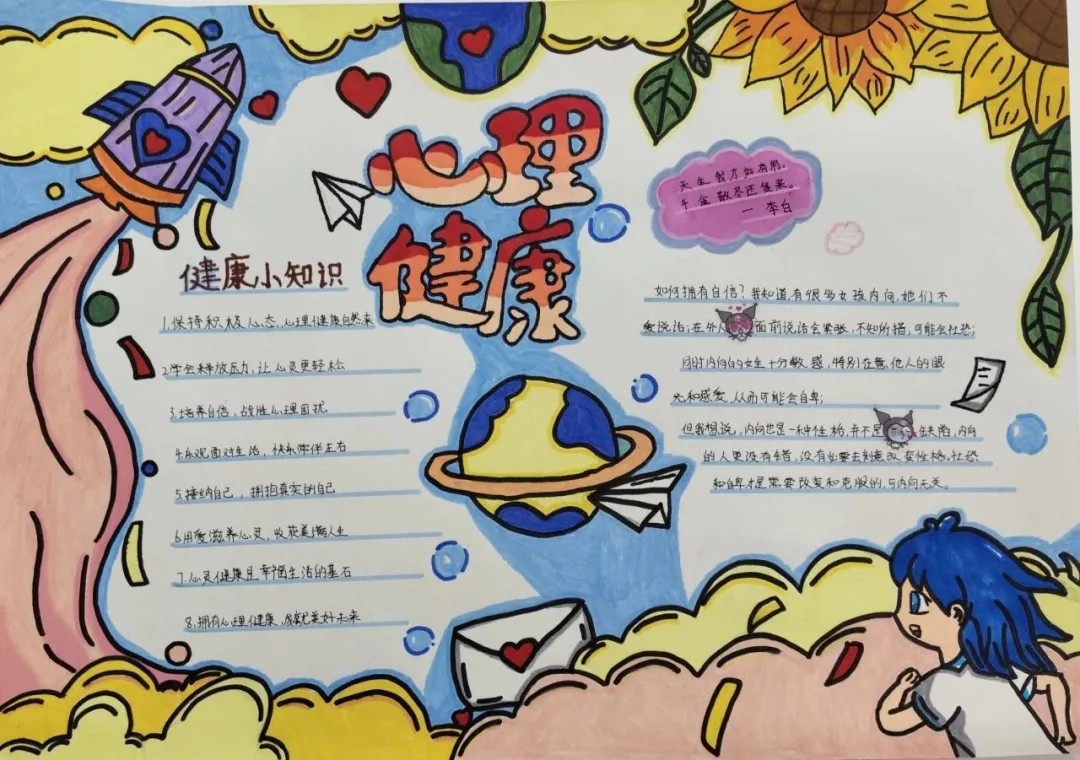 心理
健康
天生我才必有用。
千金散尽还复来。
一 李白
健康小知识
1.保持积极心态,心理健康自然来
2学会释放压力,让心灵更轻松
3.培养自信,战胜心理困扰
4乐观面对生活,快乐常伴左右
5.接纳自己,拥抱真实的自己
6.用爱滋养心灵,收获美满人生
7.心灵健康是幸福生活的基石
8.拥有心理健康,成就美好未来
如何拥有自信?我知道有很多女孩内向,她们不
爱说话;在外人面前说话会紧张,不知所措,可能会社恐;
同时内向的女生十分敏感,特别在意他人的眼
光和感受,从而可能会自卑;
但我想说,内向也是一种性格,并不是缺陷,内向
的人更没有错,没有必要去刻意改变性格,社恐
和自卑才是需要改变和克服的,与内向无关。